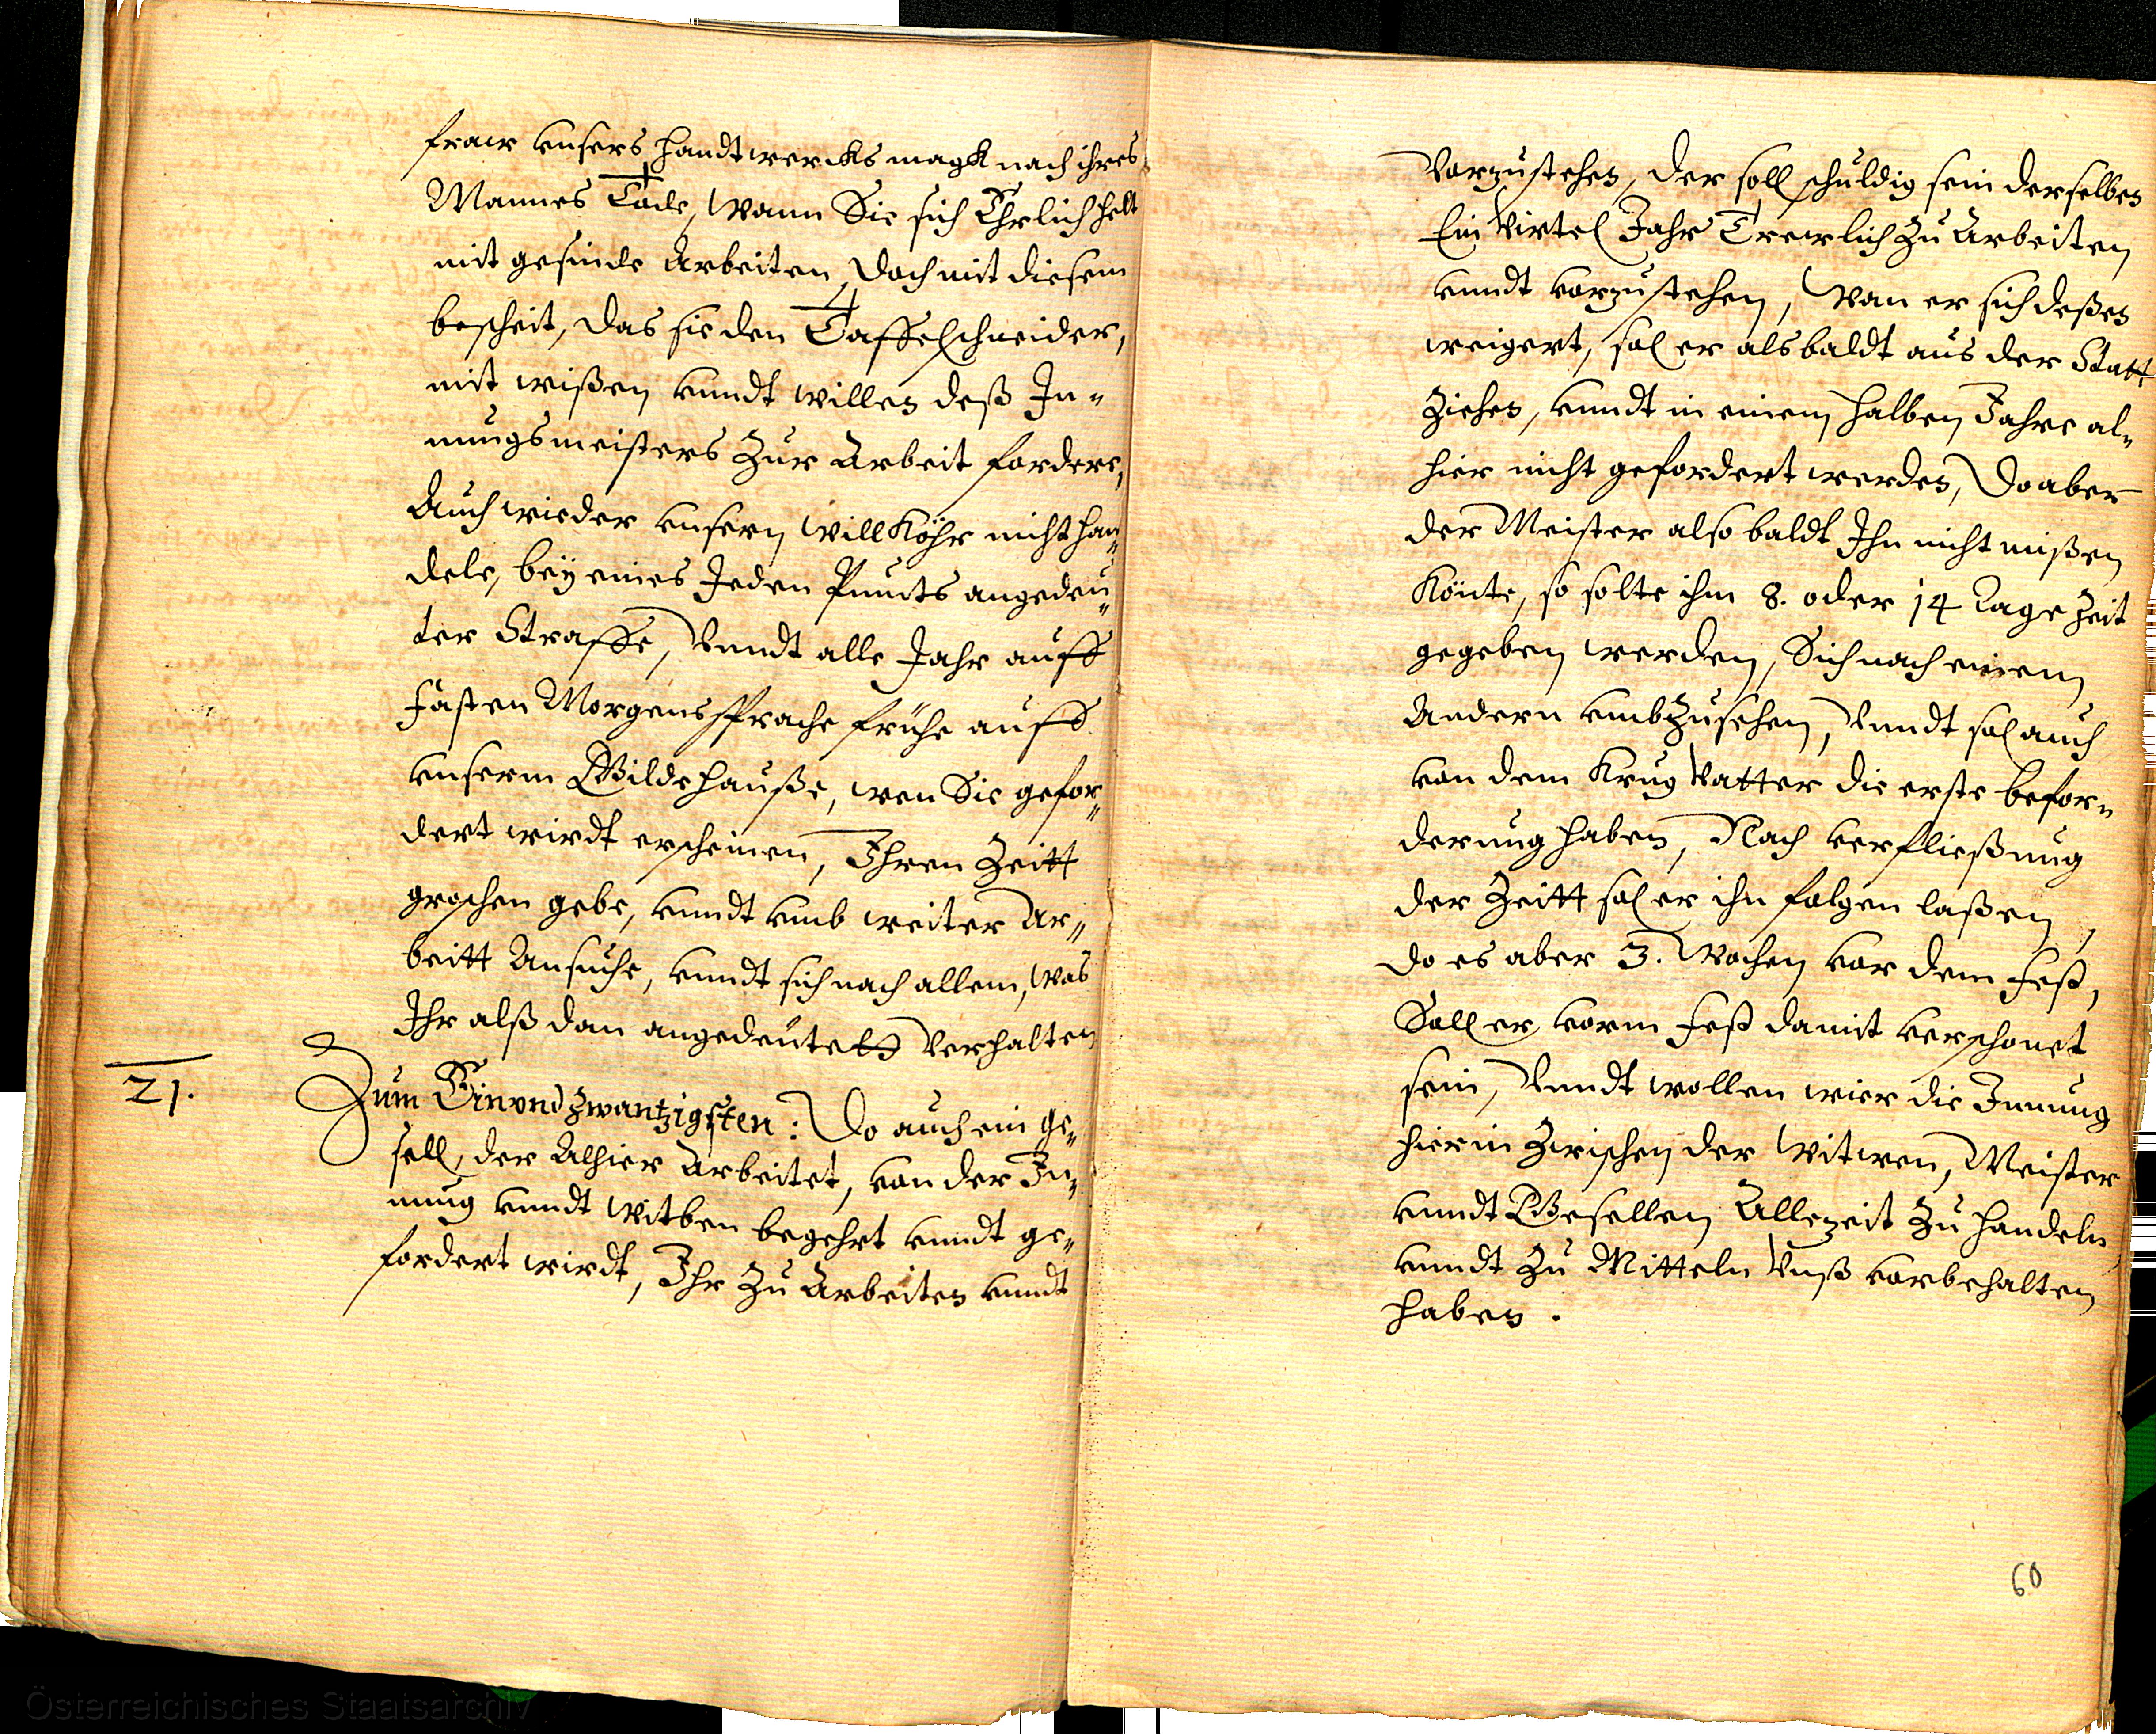 fraw vnsers handtwercks magk nach ihres
Mannes Tode, Wann Sie sich Ehrlich helt
mit gesinde Arbeiten, doch mit diesem
bescheit, das sie den Taffelschneider,
mit wißen vnndt willen deß In-
nungsmeisters Zur Arbeit fordere,
Auch wieder vnsern Willköhr nicht han-
dele, bey eines Jeden Puncts angedeu-
ter Straffe, Vnndt alle Jahr auff
Fasten Morgenssprache frühe auff
vnserm Gildehauße, wen Sie gefor-
dert wirdt erscheinen, Ihren Zeitt
groschen gebe, vnndt vmb weiter Ar-
beitt Ansuche, vnndt sich nach allem, Was
Ihr alß dan angedeutett Verhalten
21. Zum Einvndzwantzigsten: Do auch ein ge-
sell, der Alhier Arbeitet, von der In-
nung vnndt Witben begehrt vnndt ge-
fordert wirdt, Ihr Zu Arbeiten vnndt
Vorzustehen, der soll schuldig sein derselben
Ein Virtel Jahr Trewlich Zu Arbeiten
vnndt vorzustehen, Wan er sich deßen
weigert, sol er alsbaldt aus der Statt
Ziehen, vnndt in einem halben Jahre al-
hier nicht gefordert werden, Do aber
der Meister also baldt Ihn nicht mißen
Könte, so solte ihm 8. oder 14 Tage Zeit
gegeben werden, Sich nach einem
Andern vmbzusehen, Vnndt sol auch
von dem Krug Vatter die erste befor-
derung haben, Nach verfließung
der Zeitt sol er ihn folgen laßen,
do es aber 3. Wochen vor dem Fest,
Soll er vorm Fest damit verschonet
sein, Vnndt wollen wier die Innung
hierin Zwischen der Witwen, Meister
vnndt Gesellen Allezeit Zu handeln
vnndt Zu Mitteln Vnß vorbehalten
haben.
60
Österreichisches Staatsarchiv